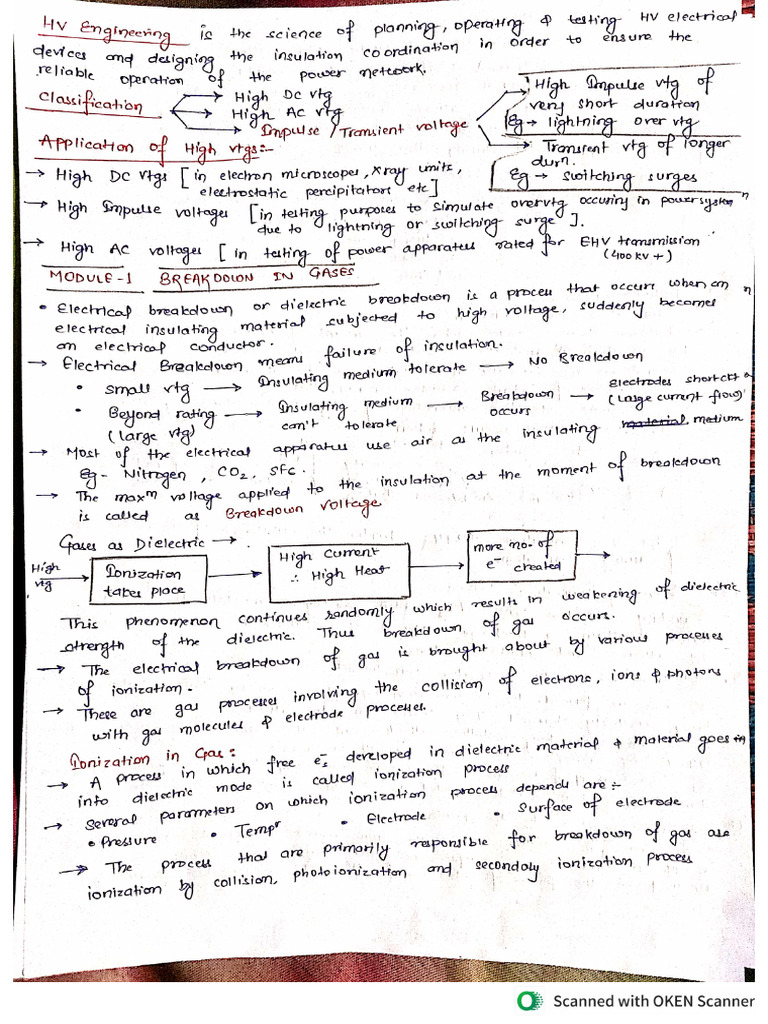 HV Engineering is the science of planning, operating & testing HV electrical
devices and designing the insulation coordination in order to ensure the
reliable operation of the power network.
Classification → High DC vtg
→ High AC vtg
→ Impulse / Transient voltage
→ High Impulse vtg of
very short duration
Eg → lightning over vtg
→ Transient vtg of longer
durn.
Eg → switching surges
Application of High vtgs:-
→ High DC vtgs [in electron microscopes, X ray units,
electrostatic percipitators etc]
→ High Impulse voltages [in testing purposes to simulate overvtg occuring in power system
due to lightning or switching surge].
→ High AC voltages [in testing of power apparatus rated for EHV transmission
(400 KV +)
MODULE-1 BREAKDOWN IN GASES
• Electrical breakdown or dielectric breakdown is a process that occurs when an
electrical insulating material subjected to high voltage, suddenly becomes
an electrical conductor.
→ Electrical Breakdown means failure of insulation.
• small vtg → Insulating medium tolerate → No Breakdown
• Beyond rating → Insulating medium → Breakdown → Electrodes shortckt
(large vtg) can't tolerate occurs (large current flow)
→ Most of the electrical apparatus use air as the insulating material, medium
Eg- Nitrogen, CO2, sfc.
→ The maxm voltage applied to the insulation at the moment of breakdown
is called as Breakdown Voltage
Gases as Dielectric →
High
vtg
Ionization
takes place
High Current
∴ High Heat
more no. of
e- created
This phenomenon continues randomly which results in weakening of dielectric
strength of the dielectric. Thus breakdown of gas occurs.
→ The electrical breakdown of gas is brought about by various processes
of ionization.
→ These are gas processes involving the collision of electrons, ions & photons
with gas molecules & electrode processes.
Ionization in Gas:
→ A process in which free e-s developed in dielectric material & material goes in
into dielectric mode is called ionization process
→ Several parameters on which ionization process depends are :-
• Pressure • Tempr • Electrode • Surface of electrode
→ The process that are primarily responsible for breakdown of gas are
ionization by collision, photoionization and secondary ionization process
Scanned with OKEN Scanner